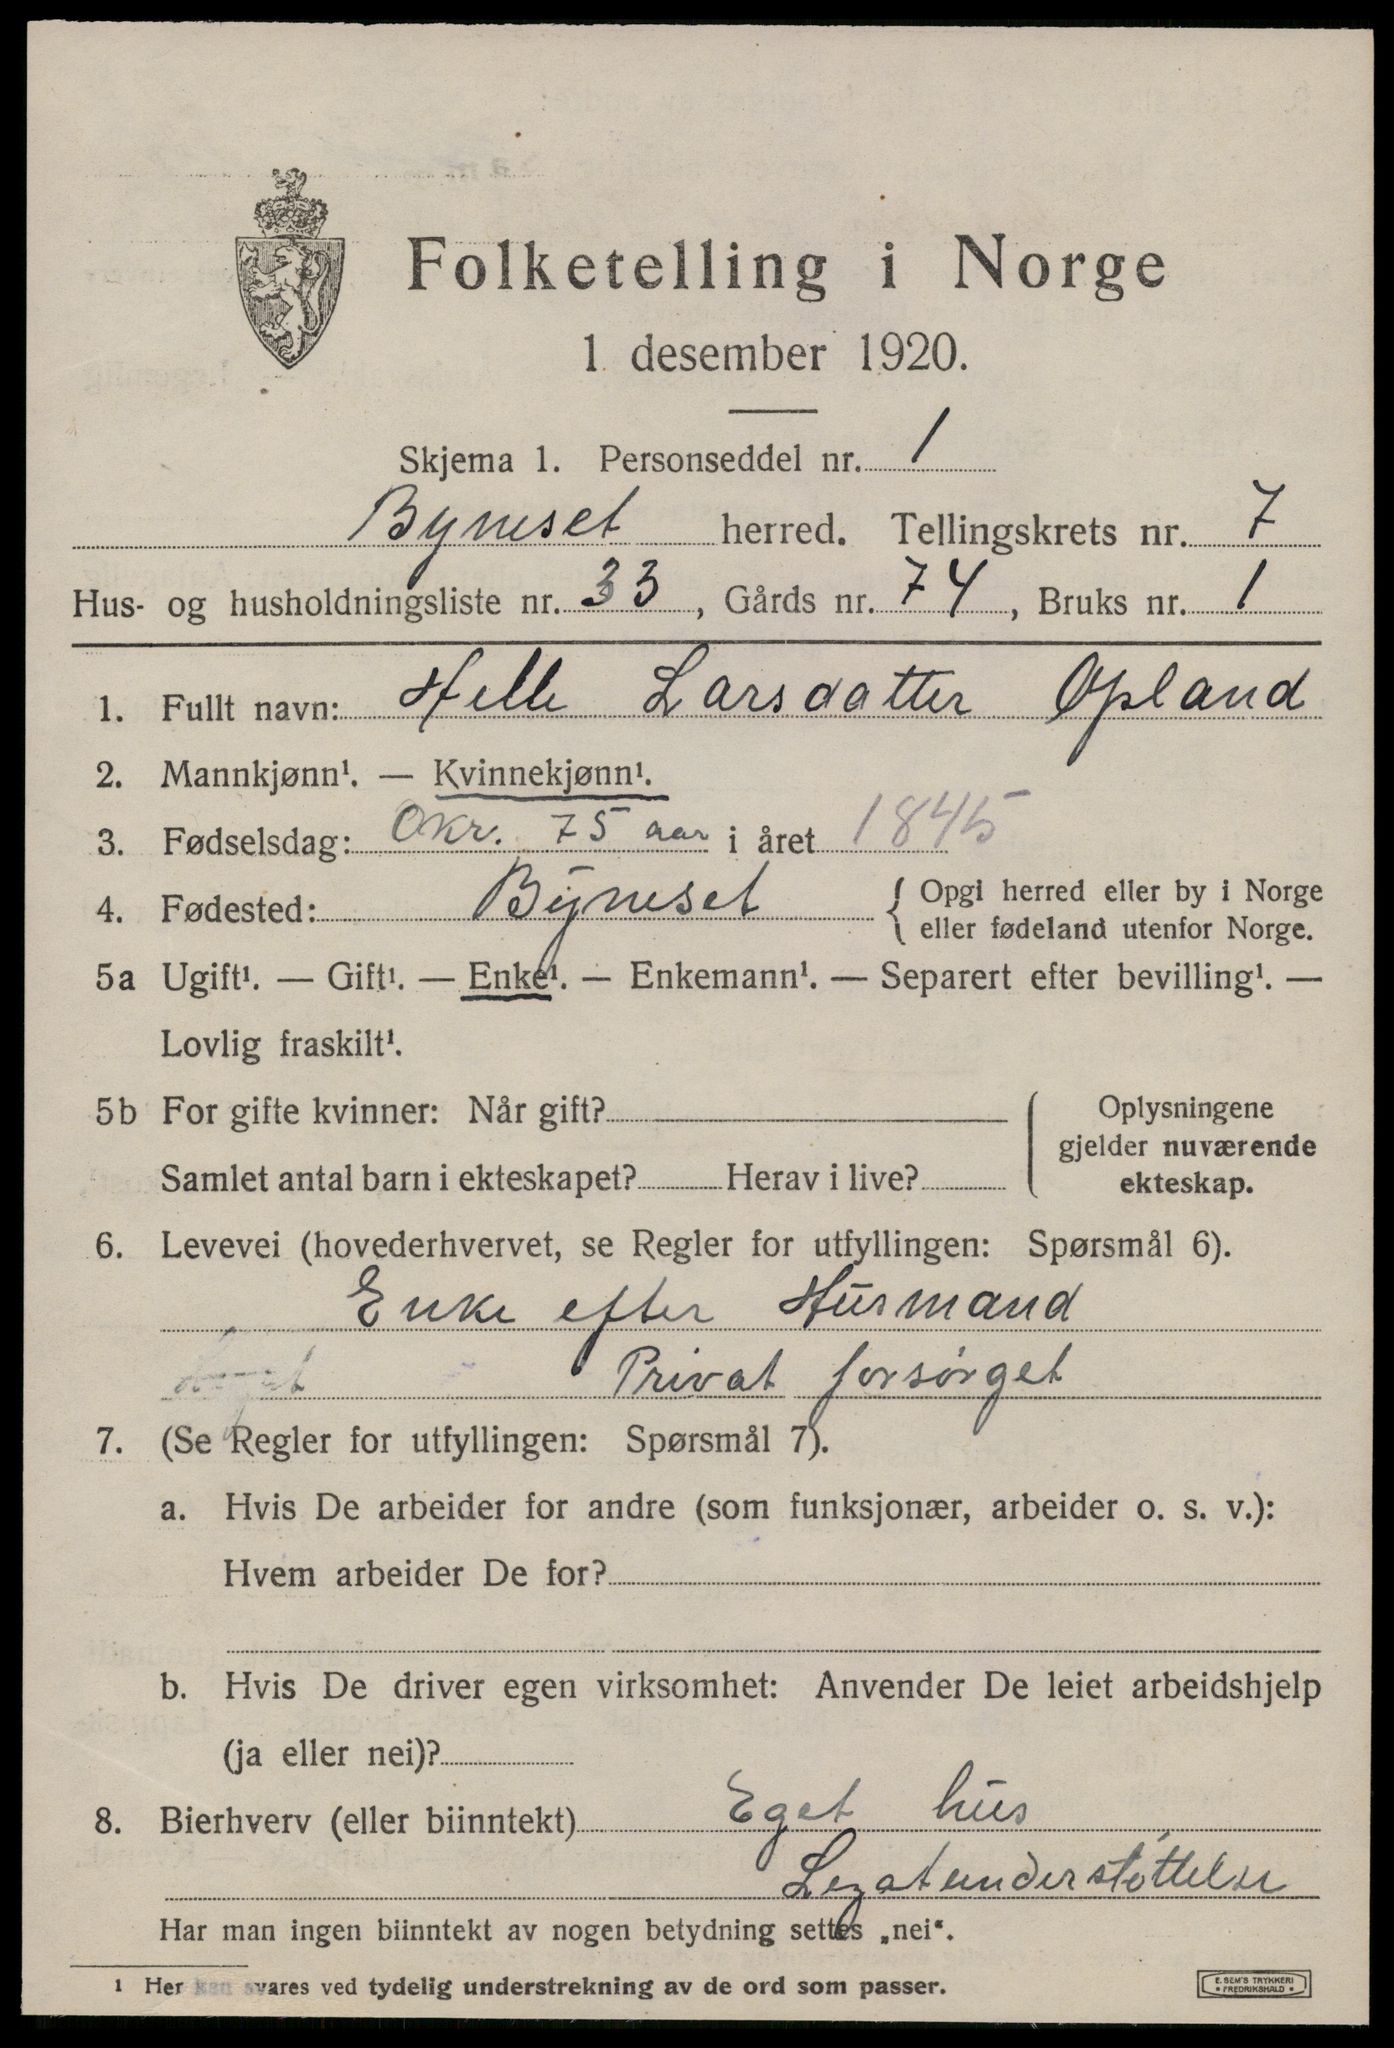 Folketelling i Norge
1 desember 1920.
Skjema 1. Personseddel nr. 1
Byneset herred. Tellingskrets nr. 7
Hus- og husholdningsliste nr. 33, Gårds nr. 74, Bruks nr. 1
1. Fullt navn: Helle Larsdatter Opland
2. Mannkjønn¹. — Kvinnekjønn¹.
3. Fødselsdag: Okr. 75 aar i året 1845
4. Fødested: Byneset { Opgi herred eller by i Norge
eller fødeland utenfor Norge.
5a Ugift¹. — Gift¹. — Enke¹. — Enkemann¹. — Separert efter bevilling¹. —
Lovlig fraskilt¹.
5b For gifte kvinner: Når gift?
Samlet antal barn i ekteskapet? Herav i live?
Oplysningene
gjelder nuværende
ekteskap.
6. Levevei (hovederhvervet, se Regler for utfyllingen: Spørsmål 6).
Enke efter Husmand
Privat forsørget
7. (Se Regler for utfyllingen: Spørsmål 7).
a. Hvis De arbeider for andre (som funksjonær, arbeider o. s. v.):
Hvem arbeider De for?
b. Hvis De driver egen virksomhet: Anvender De leiet arbeidshjelp
(ja eller nei)?
8. Bierhverv (eller biinntekt) Eget hus
Legatunderstøttelse
Har man ingen biinntekt av nogen betydning settes „nei“.
¹ Her kan svares ved tydelig understrekning av de ord som passer.
E. SEM'S TRYKKERI
• FREDRIKSHALD •